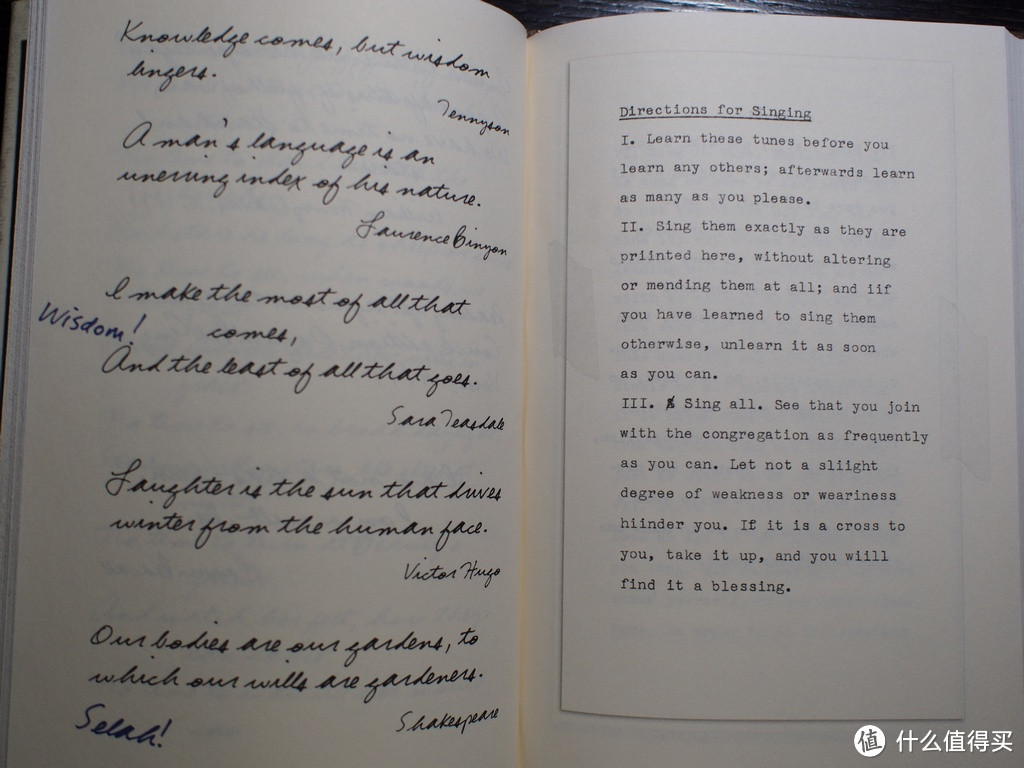 Knowledge comes, but wisdom
lingers.
Tennyson
A man's language is an
unerring index of his nature.
Laurence Binyon
I make the most of all that
comes,
Wisdom!
And the least of all that goes.
Sara Teasdale
Laughter is the sun that drives
winter from the human face.
Victor Hugo
Our bodies are our gardens, to
which our wills are gardeners.
Shakespeare
Selah!
Directions for Singing
I. Learn these tunes before you
learn any others; afterwards learn
as many as you please.
II. Sing them exactly as they are
priinted here, without altering
or mending them at all; and iif
you have learned to sing them
otherwise, unlearn it as soon
as you can.
III. Sing all. See that you join
with the congregation as frequently
as you can. Let not a sliight
degree of weakness or weariness
hiinder you. If it is a cross to
you, take it up, and you wiill
find it a blessing.
值 什么值得买